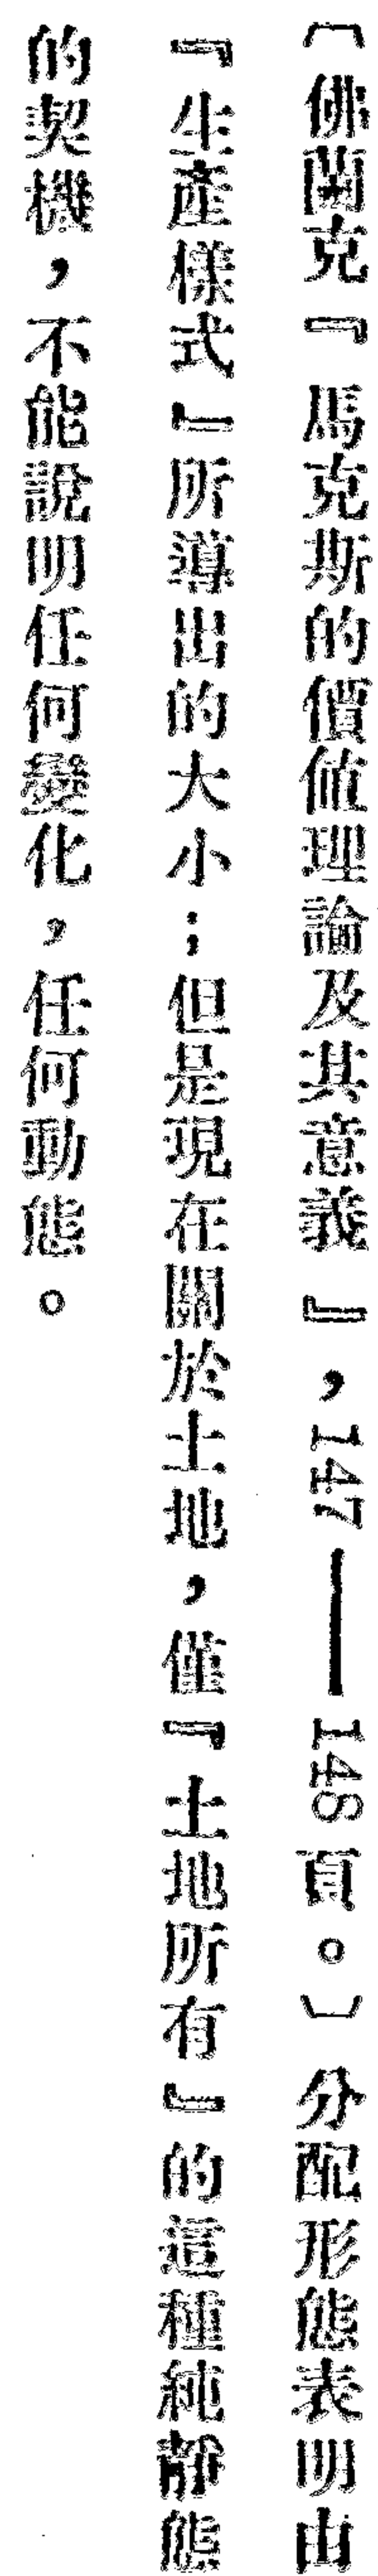 〔佛蘭克『馬克斯的價値理論及其意義』，147——148頁。〕分配形態表明由
『生產樣式』所導出的大小；但是現在關於土地，僅『土地所有』的這種純靜態
的契機，不能說明任何變化，任何動態。